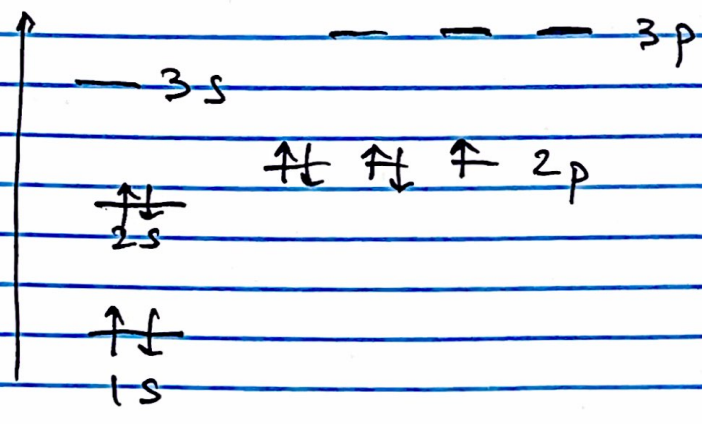 3p
3s
↑↓ ↑↓ ↑ 2p
↑↓
2s
↑↓
1s